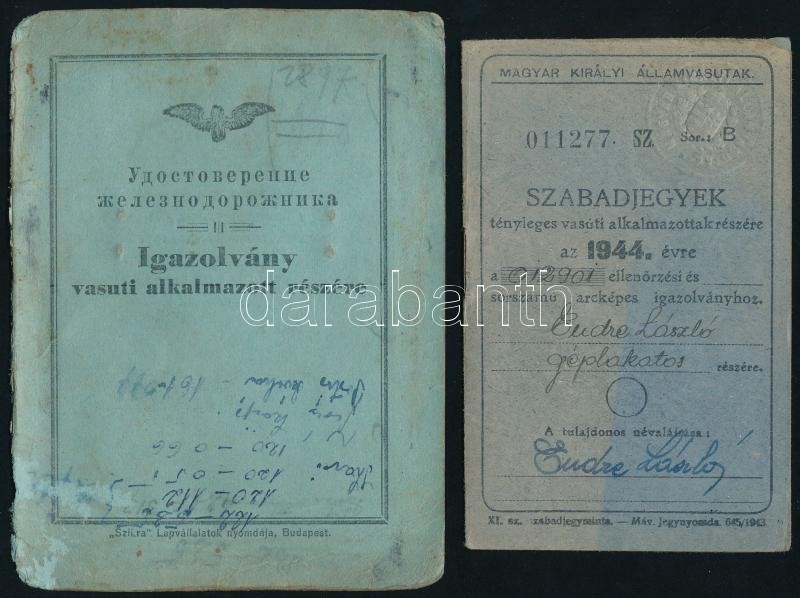 2897
Удостоверение
железнодорожника
Igazolvány
vasuti alkalmazott részére
120 – 066
120 – 051
120 – 112
„Szikra" Lapvállalatok nyomdája, Budapest.
MAGYAR KIRÁLYI ÁLLAMVASUTAK.
011277. SZ. Sor.: B
SZABADJEGYEK
tényleges vasúti alkalmazottak részére
az 1944. évre
a 012901 ellenőrzési és
sorszámú arcképes igazolványhoz.
Endre László
géplakatos részére.
A tulajdonos névaláírása:
Endre László
XI. sz. szabadjegyminta. — Máv. Jegynyomda. 645/1943
darabanth